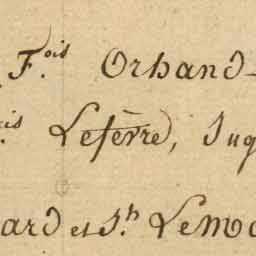 F.ois Orhand
is Lefèvre, Jug
ard et Jh. LeMo